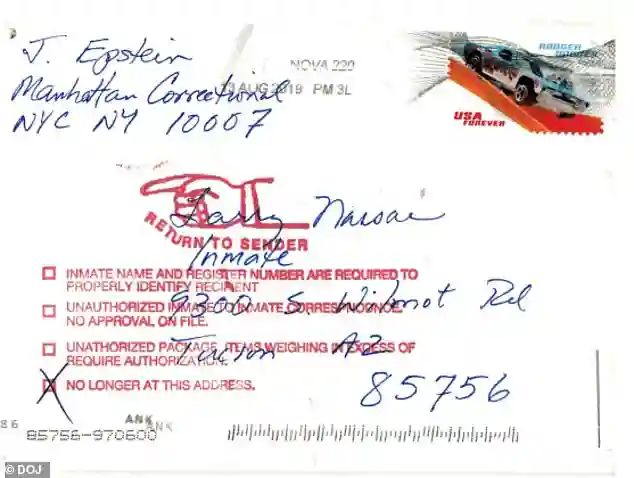 J. Epstein
Manhattan Correctional
NYC NY 10007
NOVA 220
AUG 2019 PM 3L
USA
FOREVER
Larry Nassar
RETURN TO SENDER
Inmate
INMATE NAME AND REGISTER NUMBER ARE REQUIRED TO
PROPERLY IDENTIFY RECIPIENT
9300 S. Wilmot Rd
UNAUTHORIZED INMATE TO INMATE CORRESPONDENCE.
NO APPROVAL ON FILE.
Tucson AZ
UNAUTHORIZED PACKAGE, ITEMS WEIGHING IN EXCESS OF
REQUIRE AUTHORIZATION.
85756
NO LONGER AT THIS ADDRESS.
86
ANK
ANK
85756-970600
© DOJ